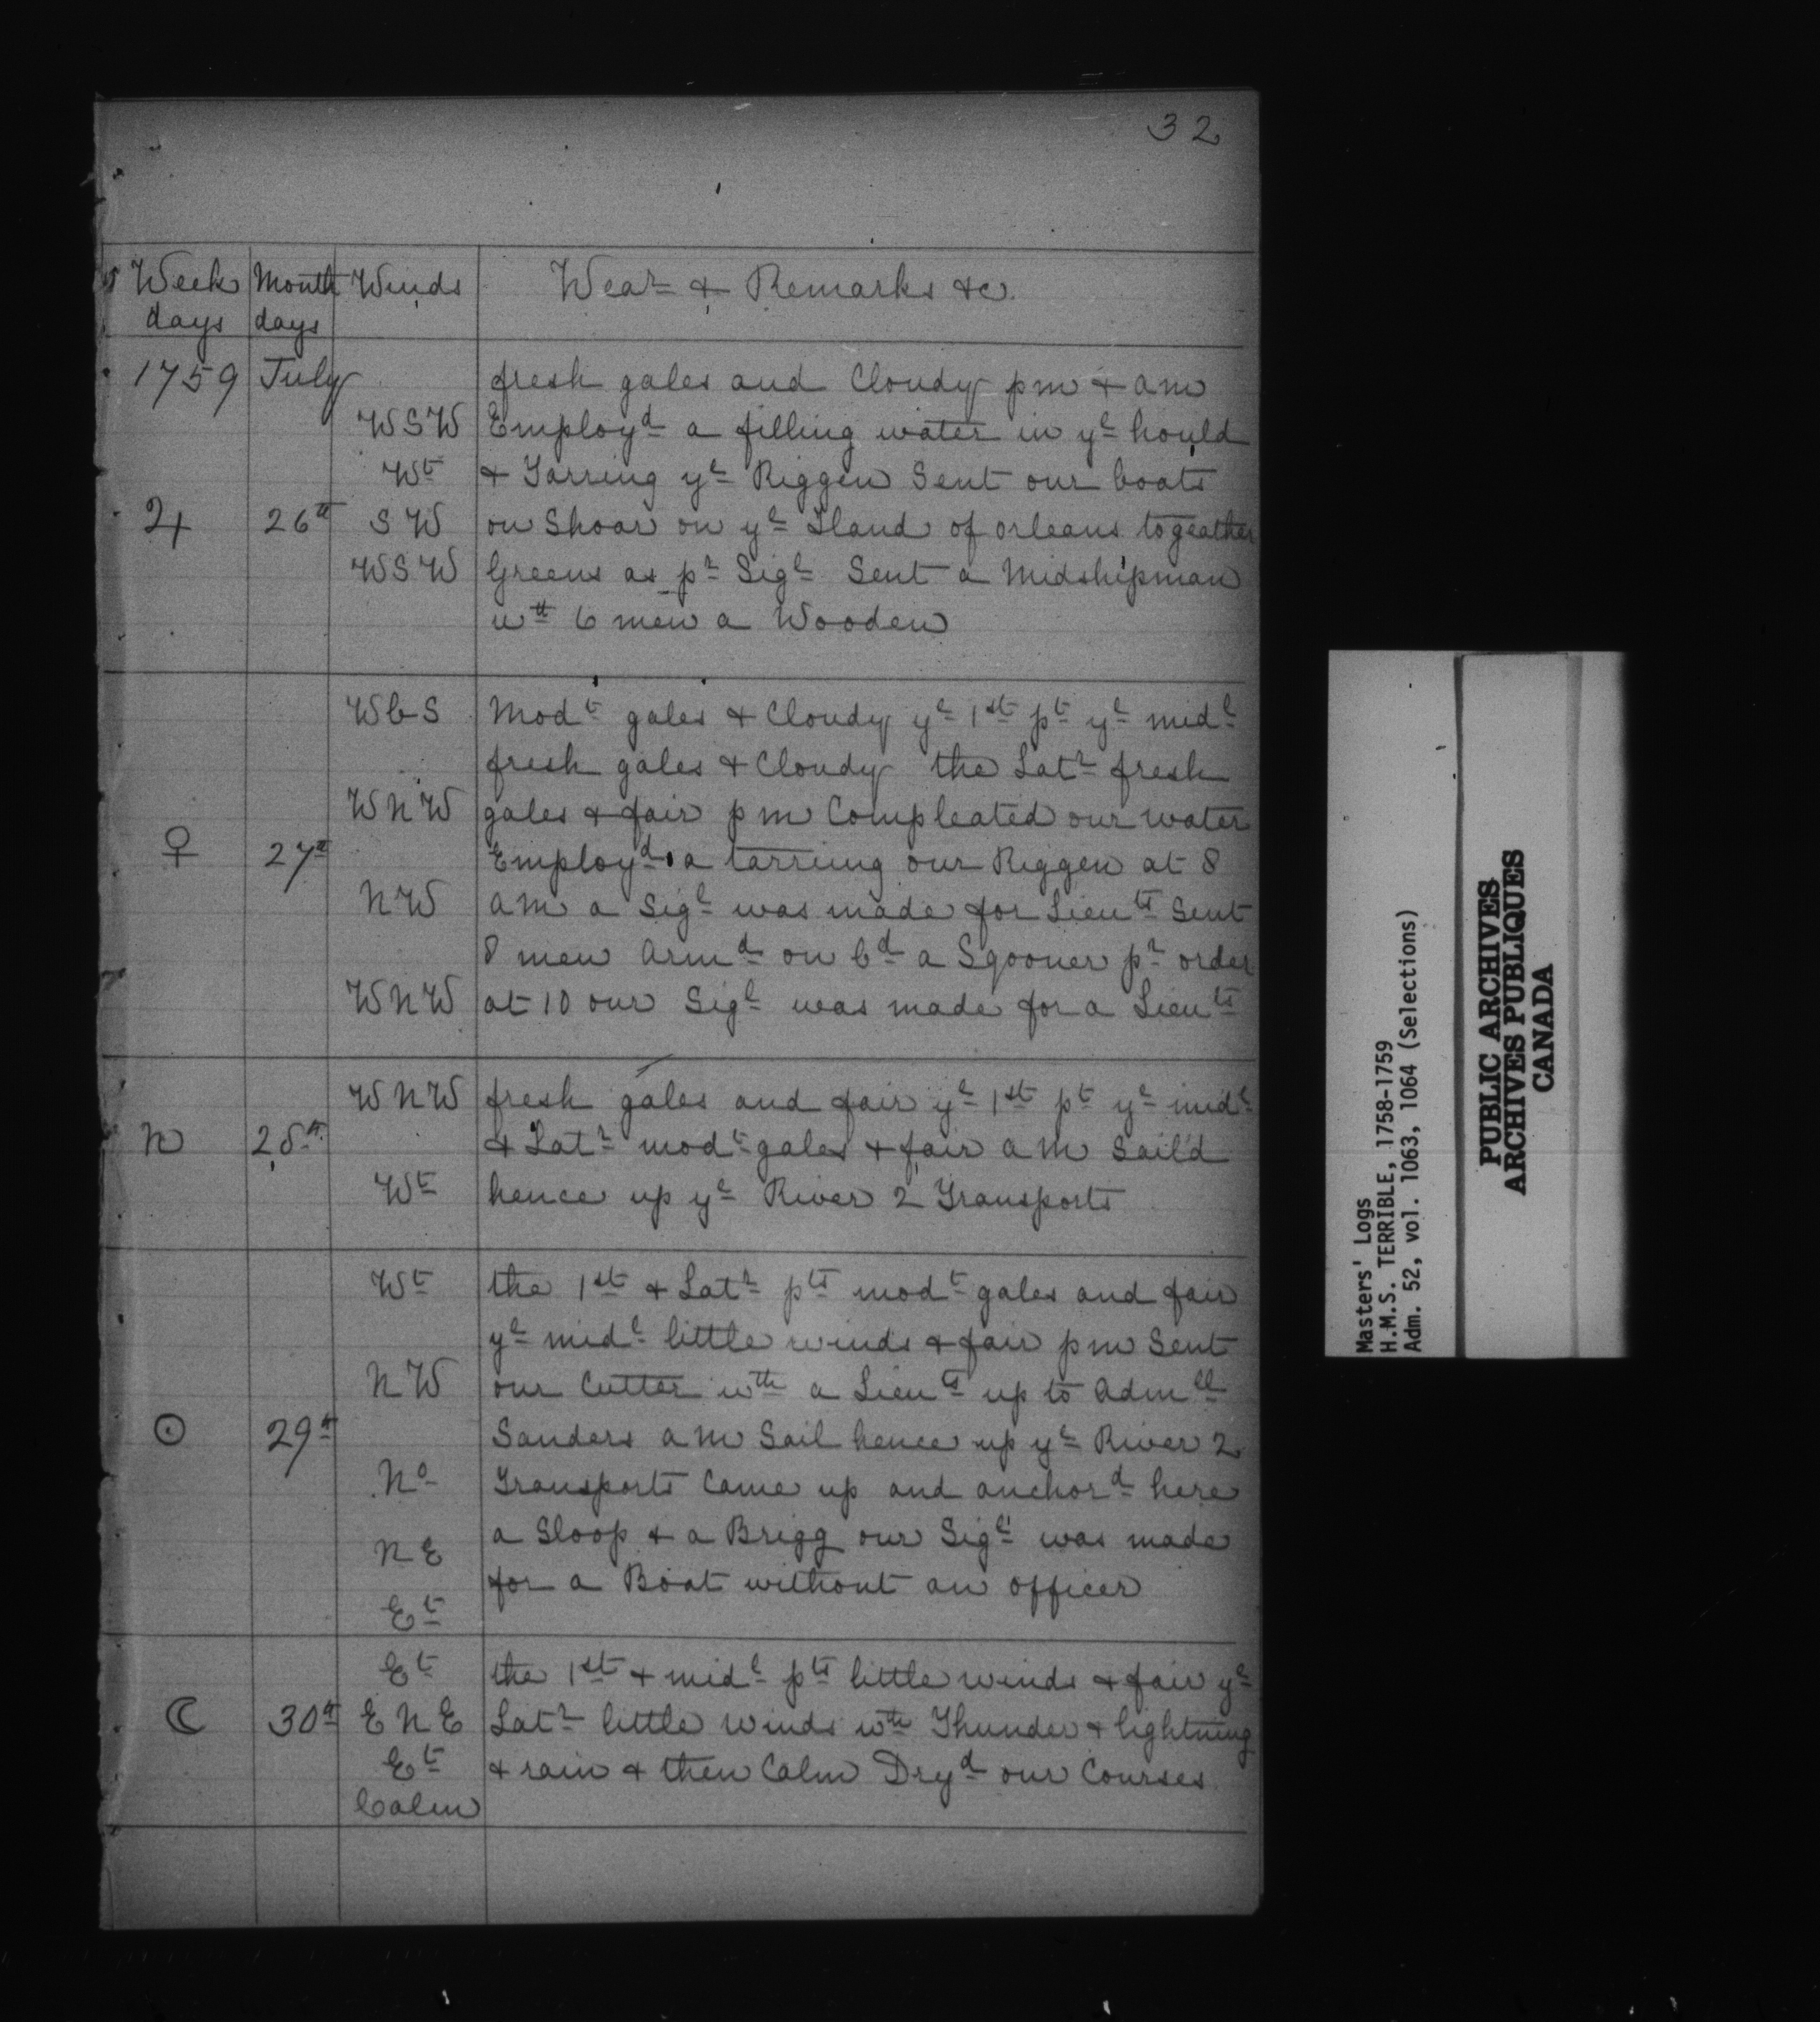 32
Week days | Month days | Winds | Wea.r & Remarks &c.
1759 | July | fresh gales and Cloudy pm & am
WSW | Employ.d a filling water in y.e hould
W.t | & Tarring y.e Riggen Sent our boats
♃ | 26.th | SW | on Shoar on y.e Iland of orleans to geather
WSW | Greens as p.r Sig.l Sent a Midshipman
w.th 6 men a Wooden
WbS | Mod.t gales & Cloudy y.e 1st p.t y.e mid.l
fresh gales & Cloudy the Lat.r fresh
WNW | gales & fair pm Compleated our water
♀ | 27.th | Employ.d a tarring our Riggen at 8
NW | am a Sig.l was made for Lieu.ts Sent
8 men Arm.d on b.d a Sgooner p.r order
WNW | at 10 our Sig.l was made for a Lieu.ts
WNW | fresh gales and fair y.e 1st p.t y.e mid.l
♄ | 28.th | & Lat.r mod.t gales & fair am Sail'd
W.t | hence up y.e River 2 Transports
W.t | the 1st & Lat.r p.ts mod.t gales and fair
y.e mid.l little winds & fair pm Sent
NW | our Cutter w.th a Lieu.ts up to Adm.ll
☉ | 29.th | Sanders am Sail hence up y.e River 2
N.o | Transports Came up and anchor.d here
NE | a Sloop & a Brigg our Sig.l was made
for a Boat without an officer
E.t
E.t | the 1st & mid.l p.ts little winds & fair y.e
☾ | 30.th | ENE | Lat.r little winds w.th Thunder & lightning
E.t | & rain & then Calm Dry.d our Courses
Calm
Masters' Logs
H.M.S. TERRIBLE, 1758-1759
Adm. 52, vol. 1063, 1064 (Selections)
PUBLIC ARCHIVES
ARCHIVES PUBLIQUES
CANADA